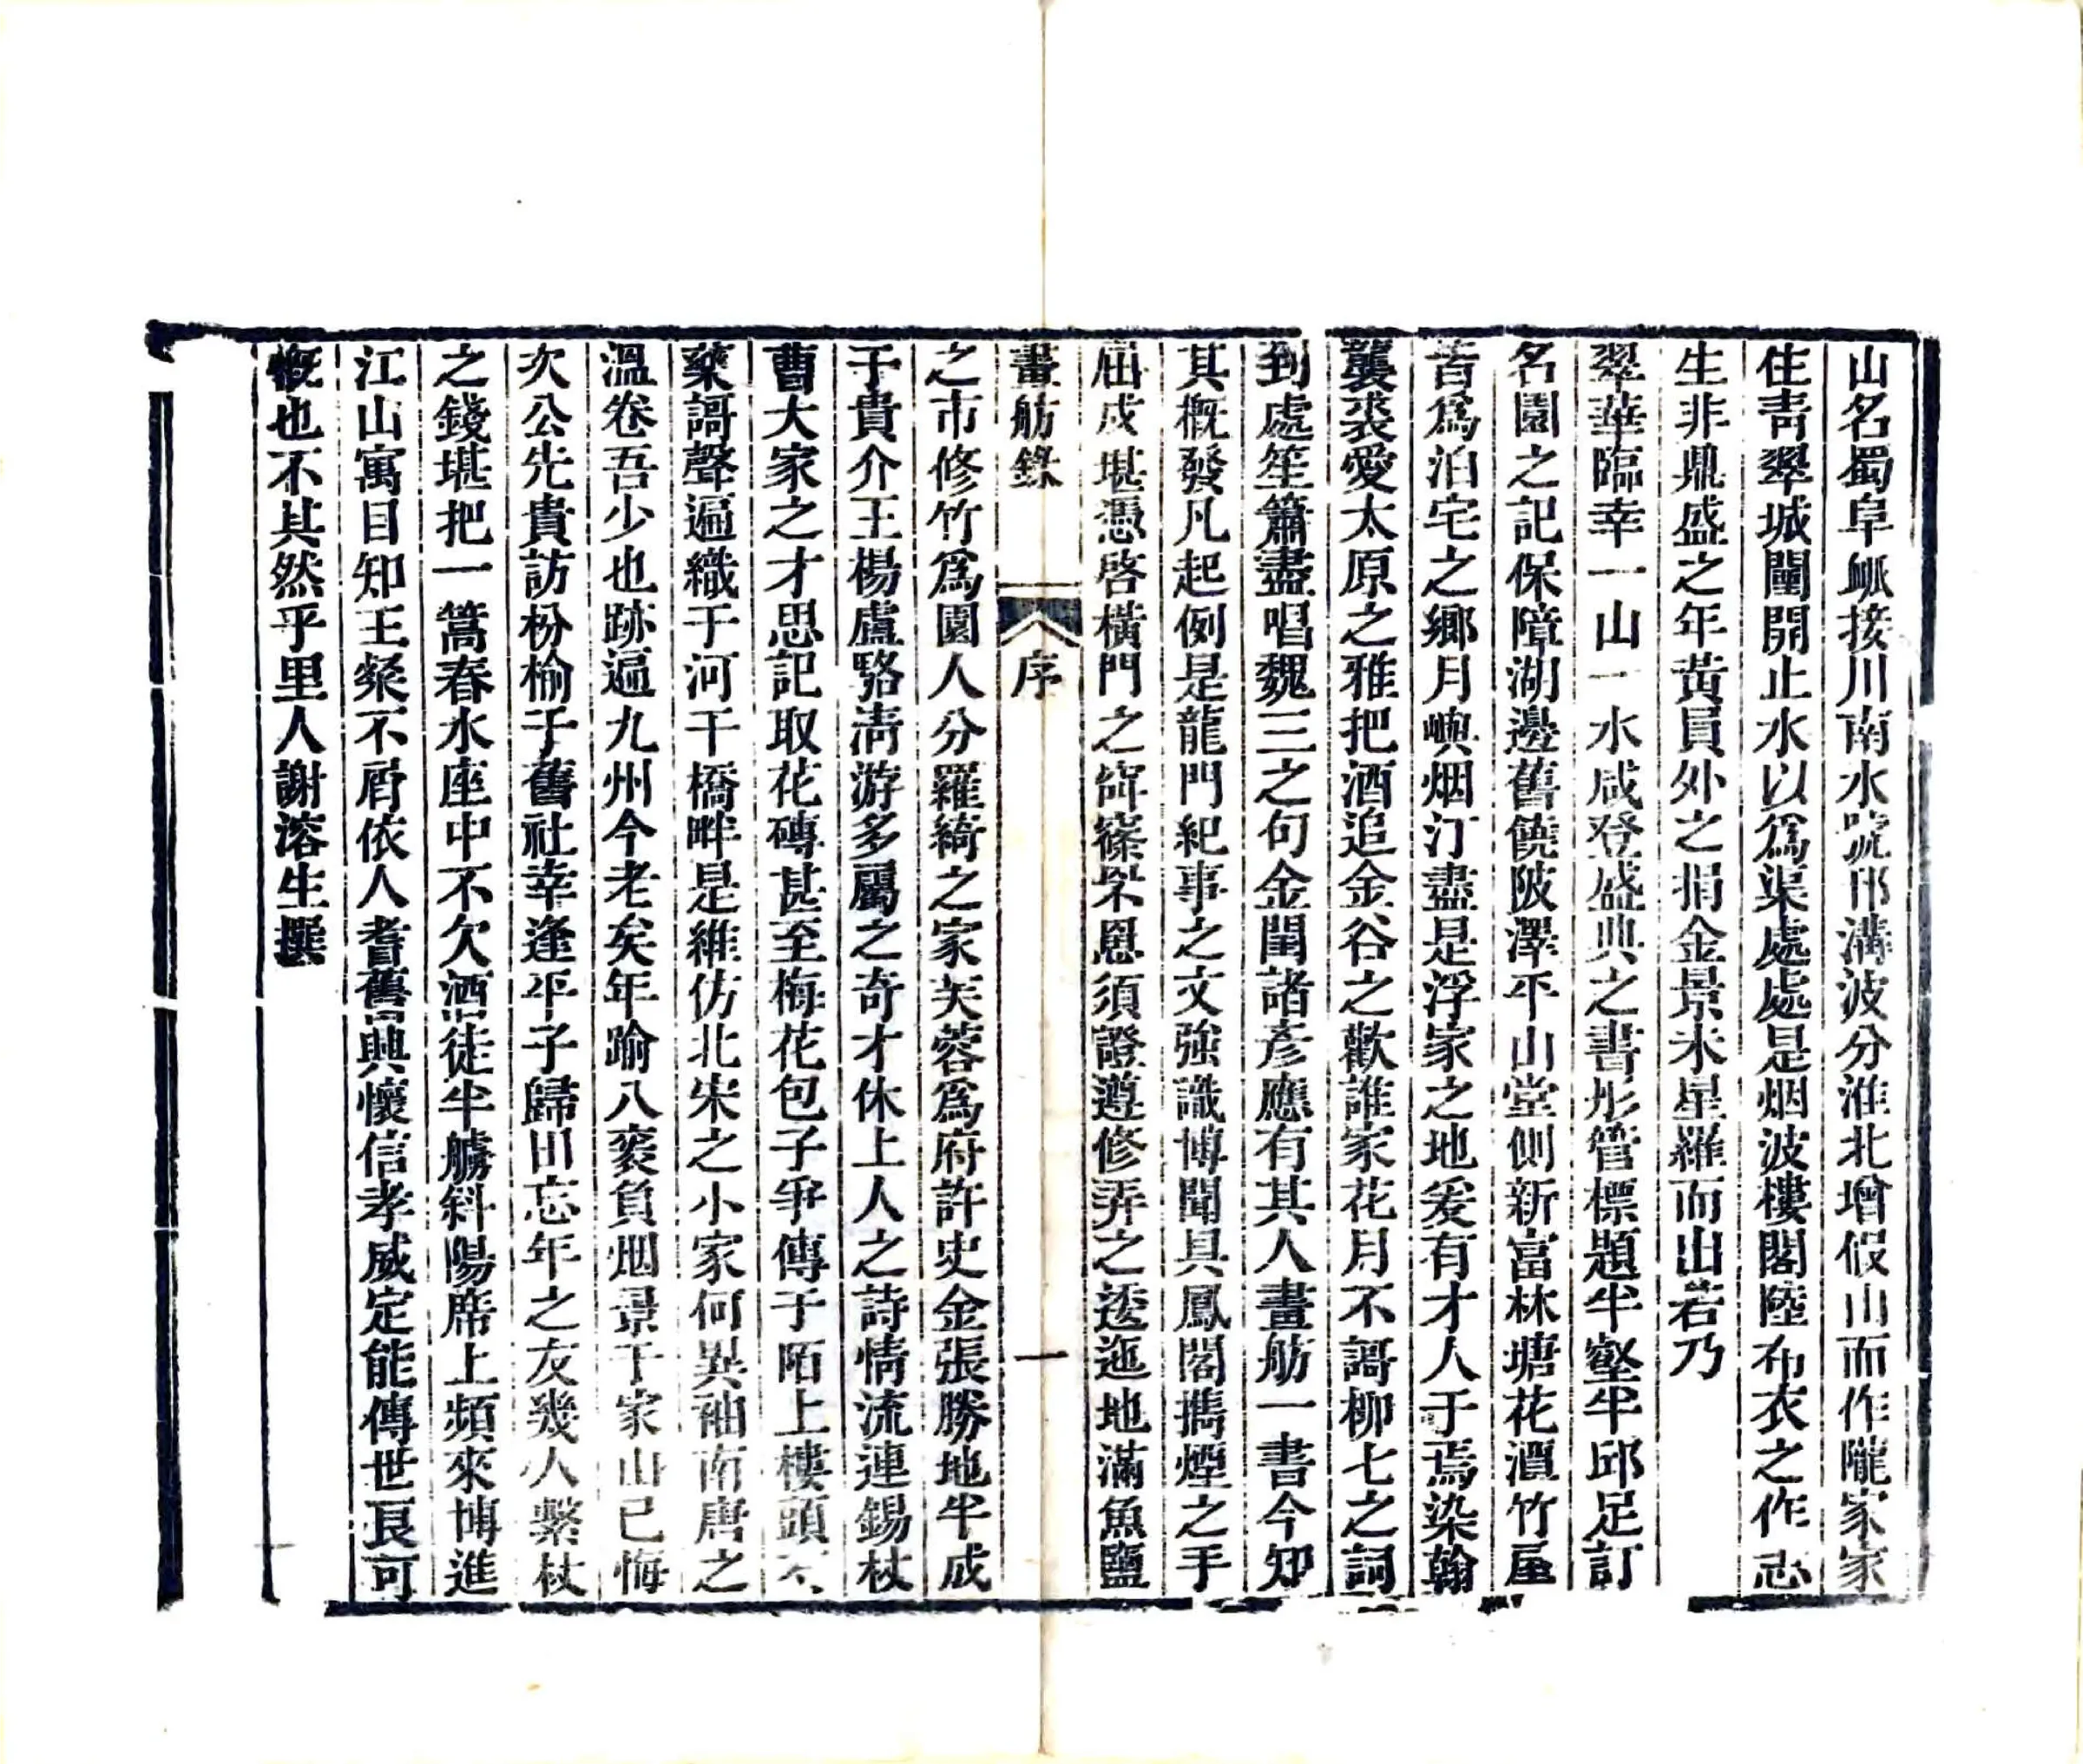 山名蜀阜岷接川南水號邗溝波分淮北增假山而作隴家家
住靑翠城闉開止水以爲渠處處是烟波樓閣陸布衣之作志
生非鼎盛之年黃員外之捐金景未星羅而出若乃
翠華臨幸一山一水咸登盛典之書彤管標題半壑半邱足訂
名園之記保障湖邊舊饒陂澤平山堂側新富林塘花潭竹屋
昔爲泊宅之鄉月嶼烟汀盡是浮家之地爰有才人于焉染翰
襲裘愛太原之雅把酒追金谷之歡誰家花月不謌柳七之詞
到處笙簫盡唱魏三之句金閨諸彥應有其人畫舫一書今知
其槪發凡起例是龍門紀事之文強識博聞具鳳閣摛煙之手
屆戍堪憑啓橫門之窲罘罳須證遵修弄之逶迤地滿魚鹽
畫舫錄 序 一
之市修竹爲園人分羅綺之家芙蓉爲府許史金張勝地半成
于貴介王楊盧駱淸游多屬之奇才休上人之詩情流連錫杖
曹大家之才思記取花磚甚至梅花包子爭傳于陌上樓頭
藥謌聲遍織于河干橋畔是維仿北宋之小家何異袖南唐之
溫卷吾少也跡遍九州今老矣年踰八袠負烟景于家山已悔
次公先貴訪枌榆于舊社幸逢平子歸田忘年之友幾人繫杖
之錢堪把一篙春水座中不欠酒徒半艣斜陽席上頻來博進
江山寓目知王粲不屑依人耆舊興懷信孝威定能傳世良可
慨也不其然乎里人謝溶生撰